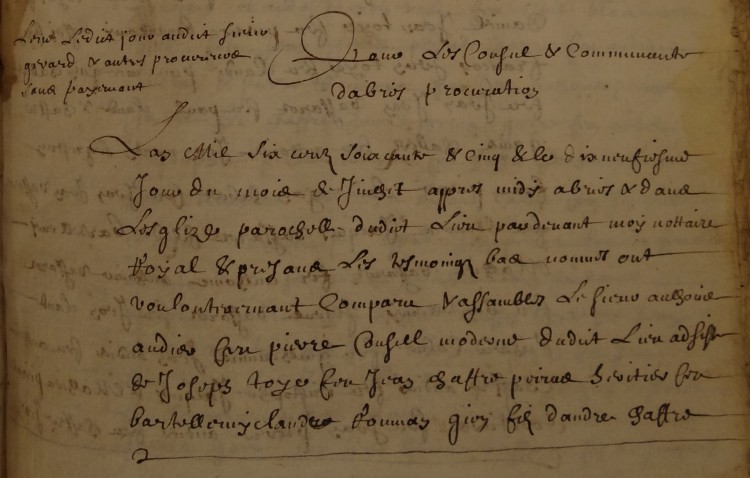 Leue Ledict jour audict sieur
girard & autres procureurs
sans payemant
Pour Les Consul & Communauté
dabries procuration
Lan Mil six cens soixante & Cinq & le dixneufiesme
Jour du mois de Juillet appres midy abries & dans
Lesglize parochelle dudict Lieu pardevant moy nottaire
Royal & presans Les tesmoings bas nommes ont
voulontairemant Comparu & assambles Le sieur anthoine
audier feu pierre Consull moderne dudict Lieu adsisté
de Joseph toye feu Jean chaffre peires heritier feu
bartellemy claude Roumans fils dandre chaffre